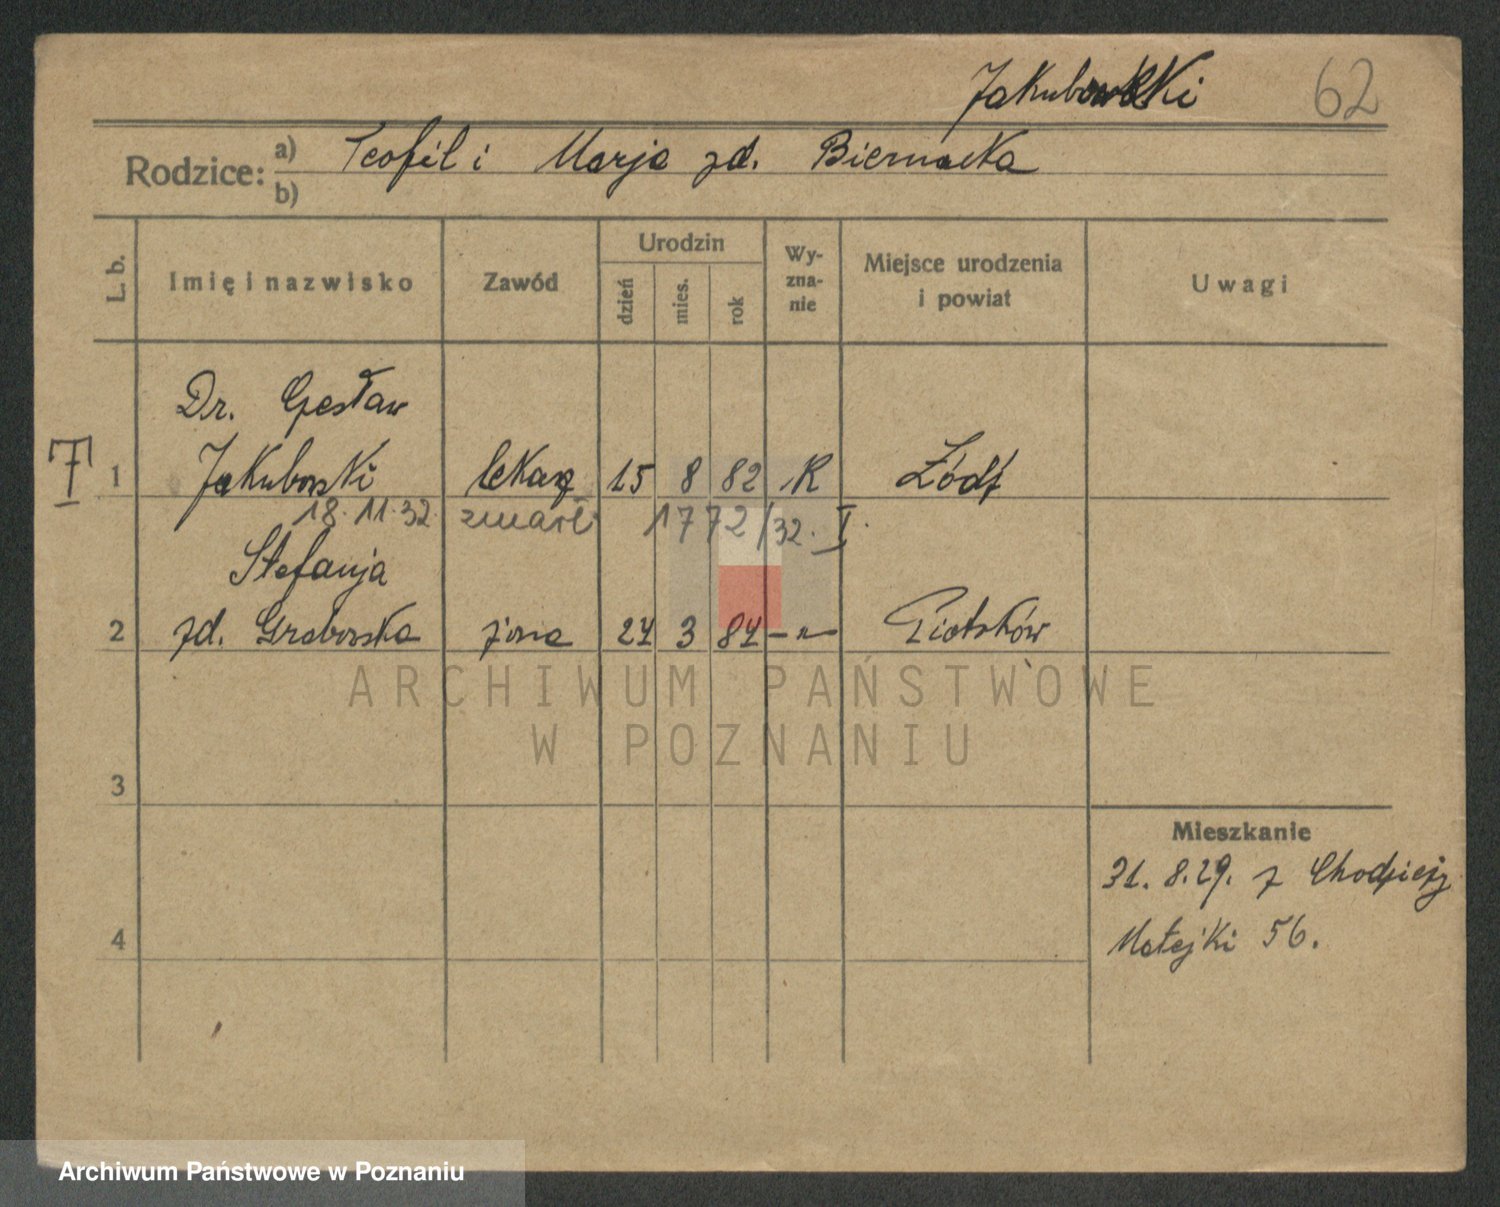 Jakubowski 62
Rodzice: a) Teofil i Marja zd. Biernacka
b)
L. b. Imię i nazwisko Zawód Urodzin dzień mies. rok Wyznanie Miejsce urodzenia i powiat Uwagi
Dr. Czesław
1 Jakubowski lekarz 15 8 82 R Łódź
18.11.32 zmarł 1772/32. I.
Stefanja
2 zd. Grabowska żona 27 3 87 —"— Piotrków
ARCHIWUM PAŃSTWOWE
W POZNANIU
3
Mieszkanie
31. 8. 29. z Chodzieży
4
Matejki 56.
Archiwum Państwowe w Poznaniu